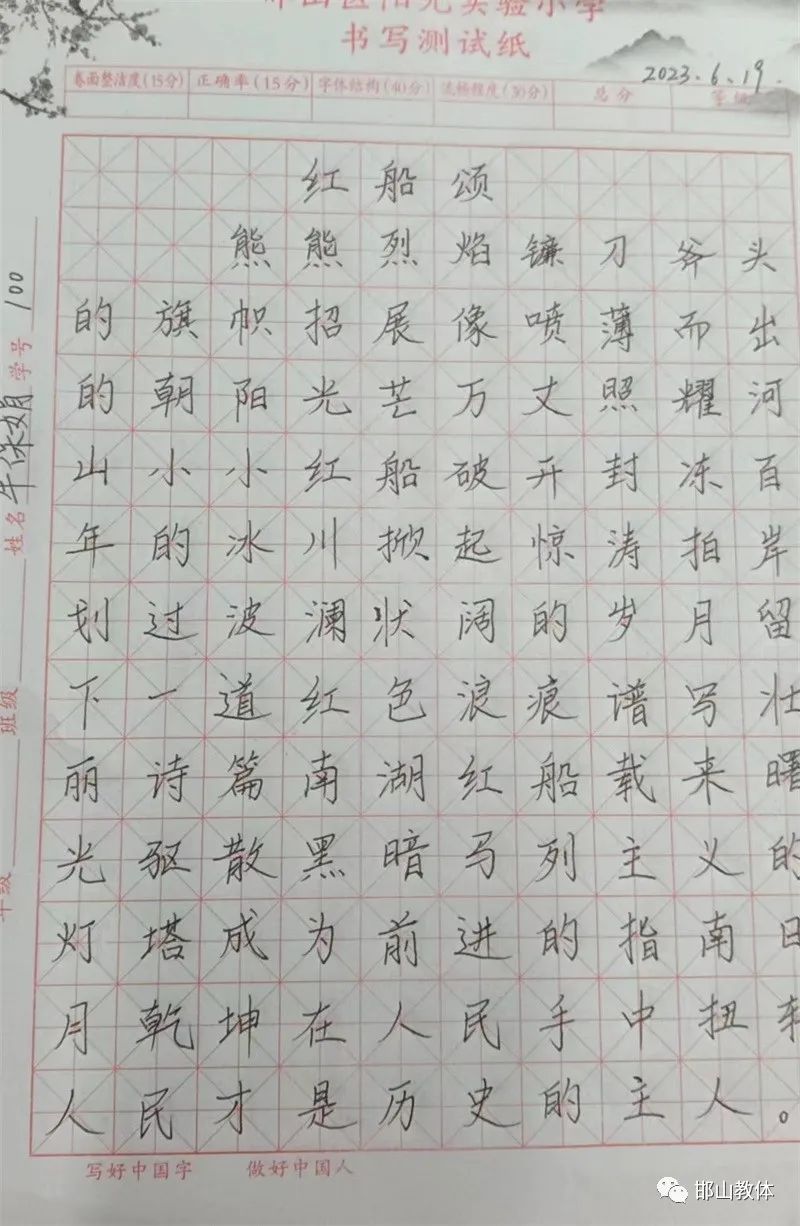 邯山区阳光实验小学
书写测试纸
2023.6.19.
卷面整洁度(15分) 正确率(15分) 字体结构(40分) 流畅程度(30分) 总分 等级
红船颂
熊熊烈焰镰刀斧头
的旗帜招展像喷薄而出
的朝阳光芒万丈照耀河
山小小红船破开封冻百
年的冰川掀起惊涛拍岸
划过波澜状阔的岁月留
下一道红色浪痕谱写壮
丽诗篇南湖红船载来曙
光驱散黑暗马列主义的
灯塔成为前进的指南日
月乾坤在人民手中扭转
人民才是历史的主人。
写好中国字 做好中国人
年级 班级 姓名 牛保娟 学号 100
邯山教体